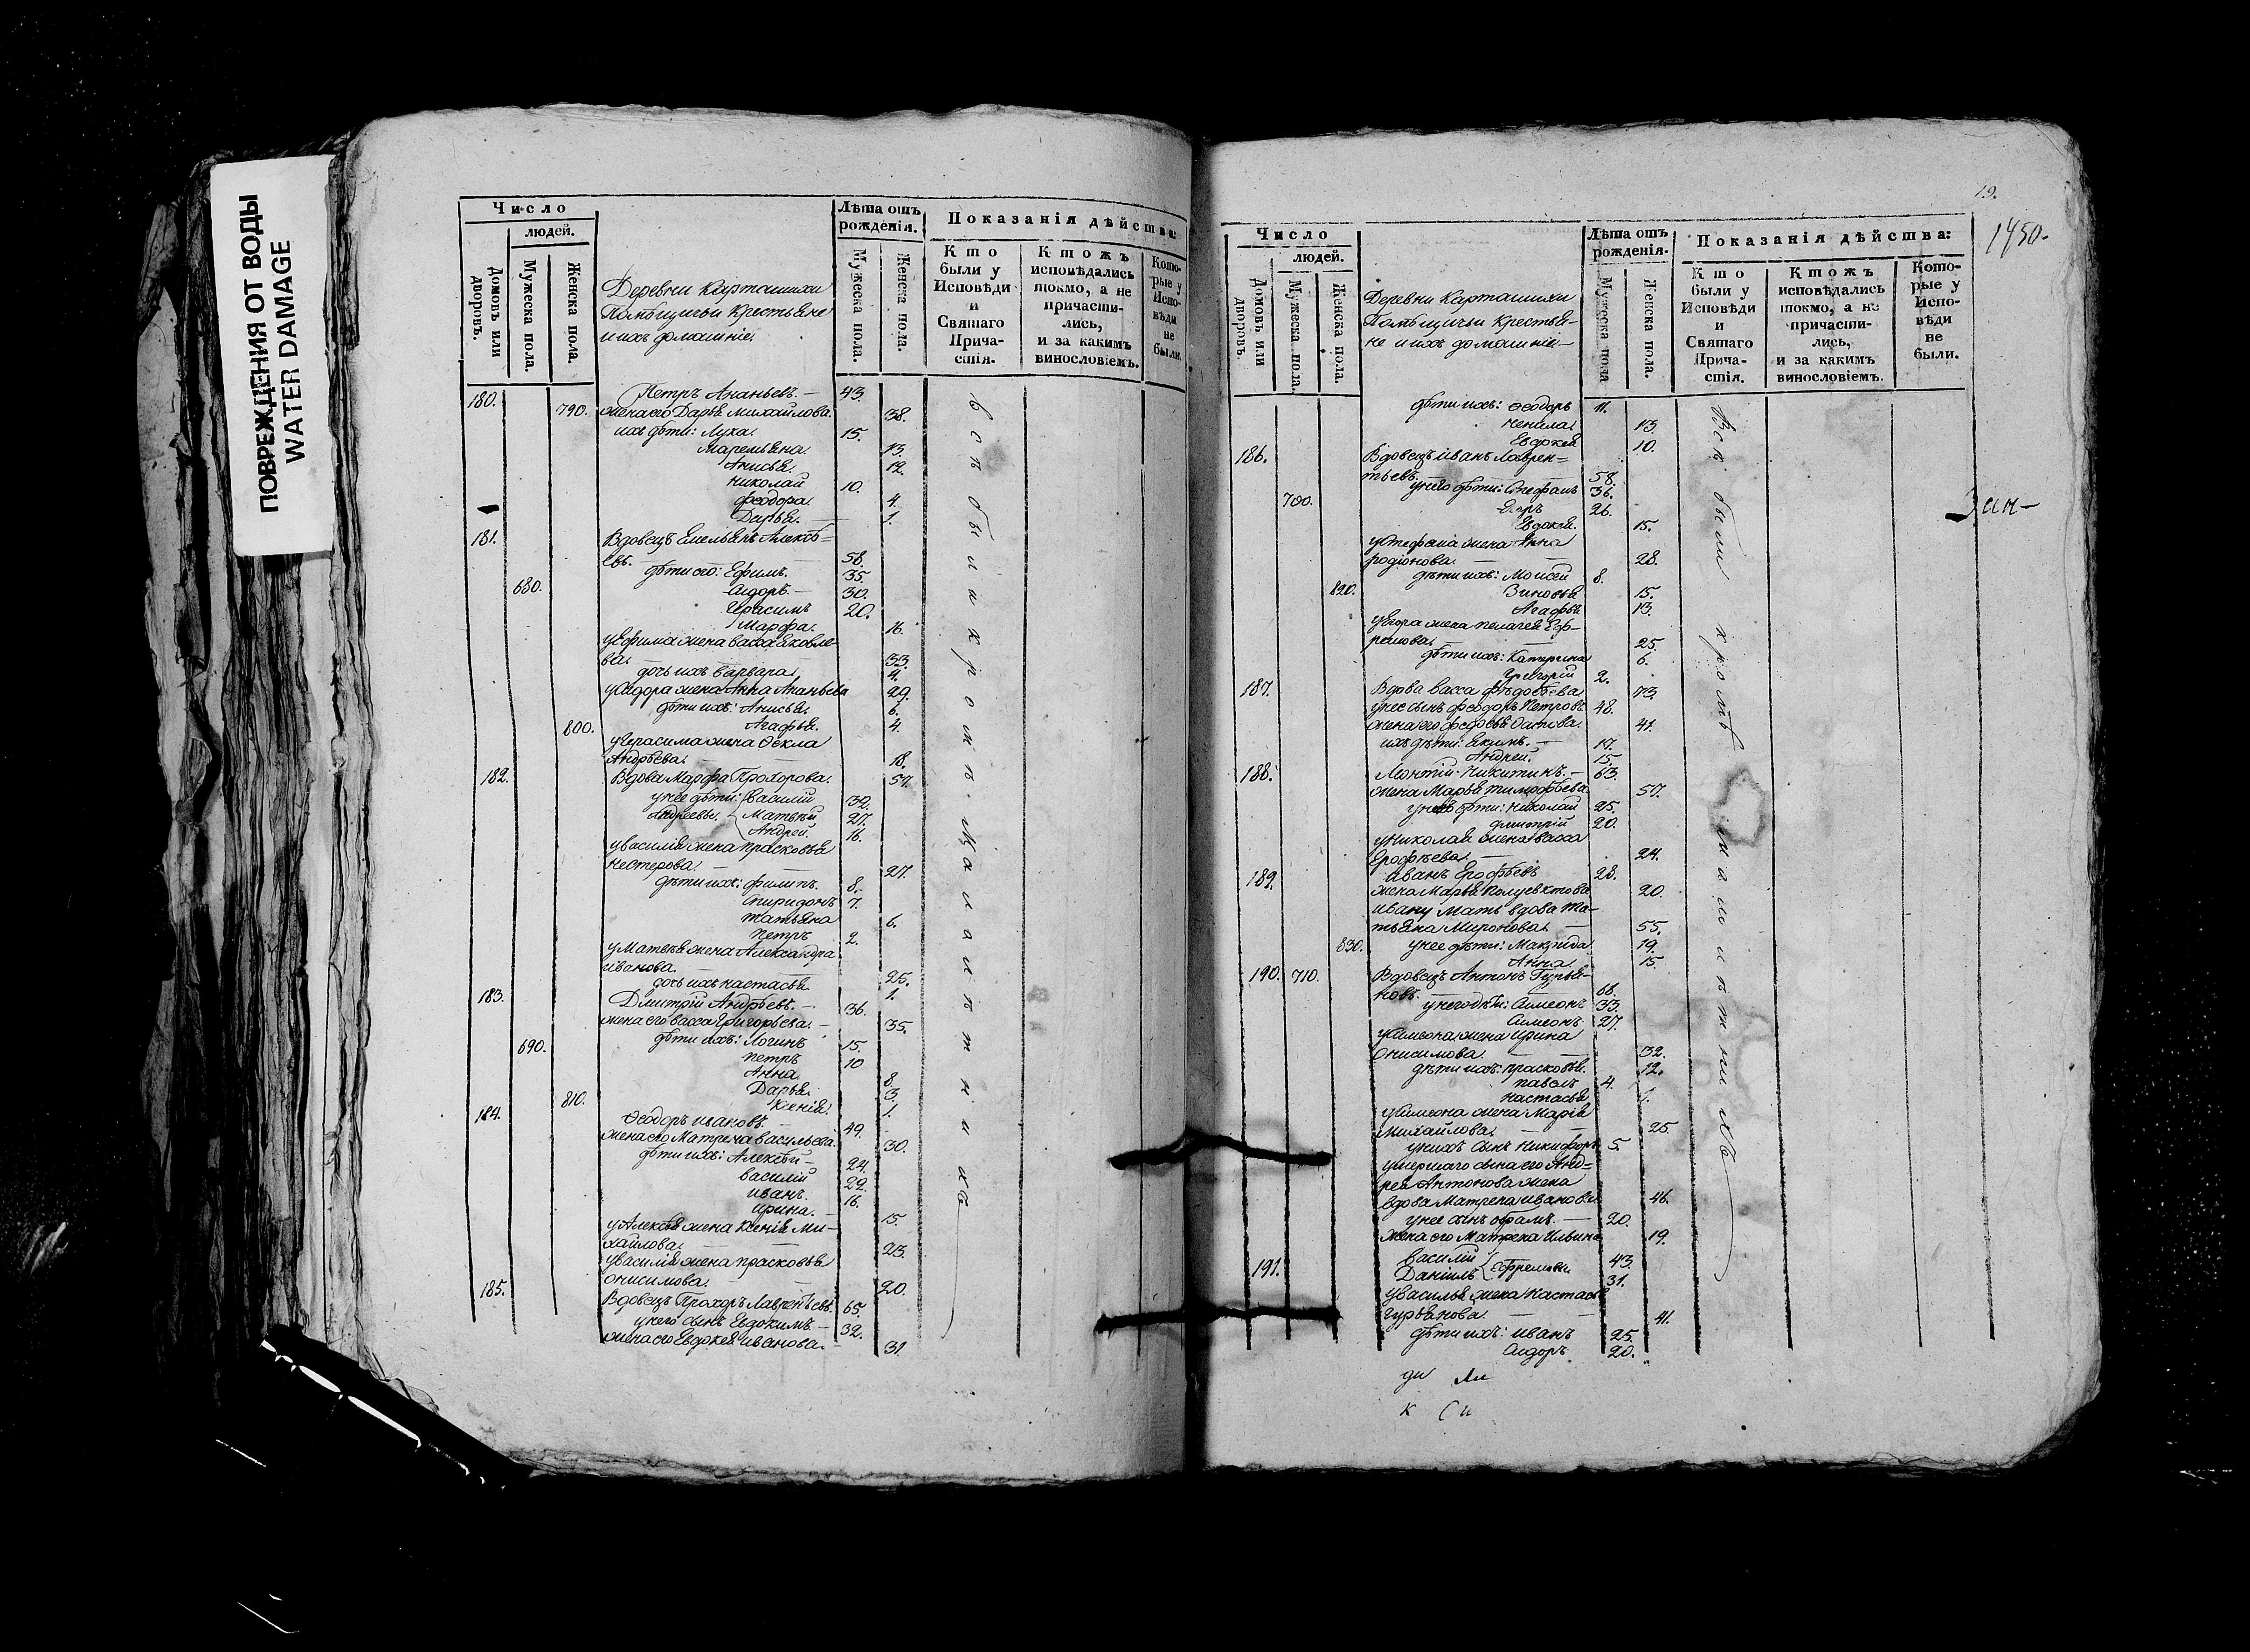 ПОВРЕЖДЕНИЯ ОТ ВОДЫ
WATER DAMAGE
Число
людей.
Домовъ или дворовъ.
Мужеска пола.
Женска пола.
Деревни Карташихи
Помѣщичьи Крестьяне
и ихъ домашніе.
Лѣта отъ рожденія.
Мужеска пола.
Женска пола.
Показанія дѣйства:
Кто были у Исповѣди и Святаго Причастія.
Ктожъ исповѣдались токмо, а не причастились, и за какимъ винословіемъ.
Которые у Исповѣди не были.
180. Петръ Ананьевъ. 43.
790. жена его Дарья Михайлова. 38.
ихъ дѣти: Лука. 15.
Маремьяна. 13.
Анисья. 12.
Николай 10.
Феодора. 4.
Дарья. 1.
181. Вдовецъ Емельянъ Алексѣ=
евъ. 58.
дѣти его: Ефимъ. 35.
680. Сидоръ. 30.
Герасимъ 20.
Марфа. 16.
у Ефима жена Васса Яковле-
ва. 33.
дочь ихъ Варвара. 4.
у Сидора жена Анна Ананьева 29.
дѣти ихъ: Анисья. 6.
800. Агафья. 4.
у Герасима жена Ѳекла
Андрѣева. 18.
182. Вдова Марфа Прохорова. 57.
у нее дѣти: Василий 32.
Андреевы. Матвѣй 27.
Андрей. 16.
у Василія жена Прасковья
Нестерова. 27.
дѣти ихъ: Филипъ. 8.
Спиридонъ 7.
Татьяна 6.
Петръ 2.
у Матвѣя жена Александра
Иванова. 25.
дочь ихъ Настасья 1.
183. Дмитрій Андрѣевъ. 36.
жена его Васса Григорьева. 35.
дѣти ихъ: Логинъ 15.
690. Петръ 10
Анна 8.
Дарья. 3.
810. Ксенія. 1.
184. Ѳеодоръ Ивановъ. 49.
жена его Матрена Васильева. 30.
дѣти ихъ: Алексѣй 24.
Василій 22.
Иванъ. 16.
Ирина. 15.
у Алексѣя жена Ксенія Ми-
хайлова. 23.
у Василія жена Прасковья
Онисимова. 20.
185. Вдовецъ Прохоръ Лаврентьевъ. 65.
у него сынъ Евдокимъ 32.
жена его Евдокея Иванова. 31.
19.
1450.
Число
людей.
Домовъ или дворовъ.
Мужеска пола.
Женска пола.
Деревни Карташихи
Помѣщичьи Крестья-
не и ихъ домашніи
Лѣта отъ рожденія.
Мужеска пола
Женска пола.
Показанія дѣйства:
Кто были у Исповѣди и Святаго Причастія.
Ктожъ исповѣдались токмо, а не причастились, и за какимъ винословіемъ.
Которые у Исповѣди не были.
дѣти ихъ: Ѳеодоръ 11.
Ненила. 13.
Евдокея 10.
186. Вдовецъ Иванъ Лаврен=
тьевъ 58.
у него дѣти: Стефанъ 36.
700. Егоръ 26.
Евдокея. 15.
у Стефана жена Анна
Родіонова. 28.
дѣти ихъ: Моисей 8.
820. Зиновья 15.
Агафья 13.
у Егора жена Пелагея Еф-
ремова. 25.
дѣти ихъ: Катерина 6.
Григорій 2.
187. Вдова Васса 73.
у нее сынъ Феодоръ Петровъ 48.
жена его Федосья Осипова. 41.
ихъ дѣти: Екимъ. 17.
Андрей. 15.
188. Леонтій Никитинъ. 63.
жена Марья Тимофѣева 57.
дѣти: Николай 25.
Дмитрій 20.
у Николая жена Васса
Ерофѣева. 24.
189. Иванъ Ерофѣевъ 28.
жена Марья Полуевктова 20.
Ивану мать вдова Та-
тьяна Миронова. 55.
830. у нее дѣти: 19.
Анна. 15.
190. 710. Вдовецъ Антонъ Гурья-
новъ. 66.
у него дѣти: Симеонъ 33.
Симеонъ 27.
у Симеона жена Ирина
Онисимова. 32.
дѣти ихъ: Прасковья. 12.
Павелъ 4.
Настасья 1.
у Симеона жена Марія
Михайлова. 25.
у нихъ сынъ Никифоръ 5.
умершаго сына его Анд=
рея Антонова жена
вдова Матрена Иванова 46.
у нее сынъ 20.
жена его Матрена Ильина 19.
191. Василій 43.
Даніилъ Ефремовы 31.
у Василья жена Настасья
Гурьянова. 41.
дѣти ихъ: Иванъ 25.
Сидоръ 20.